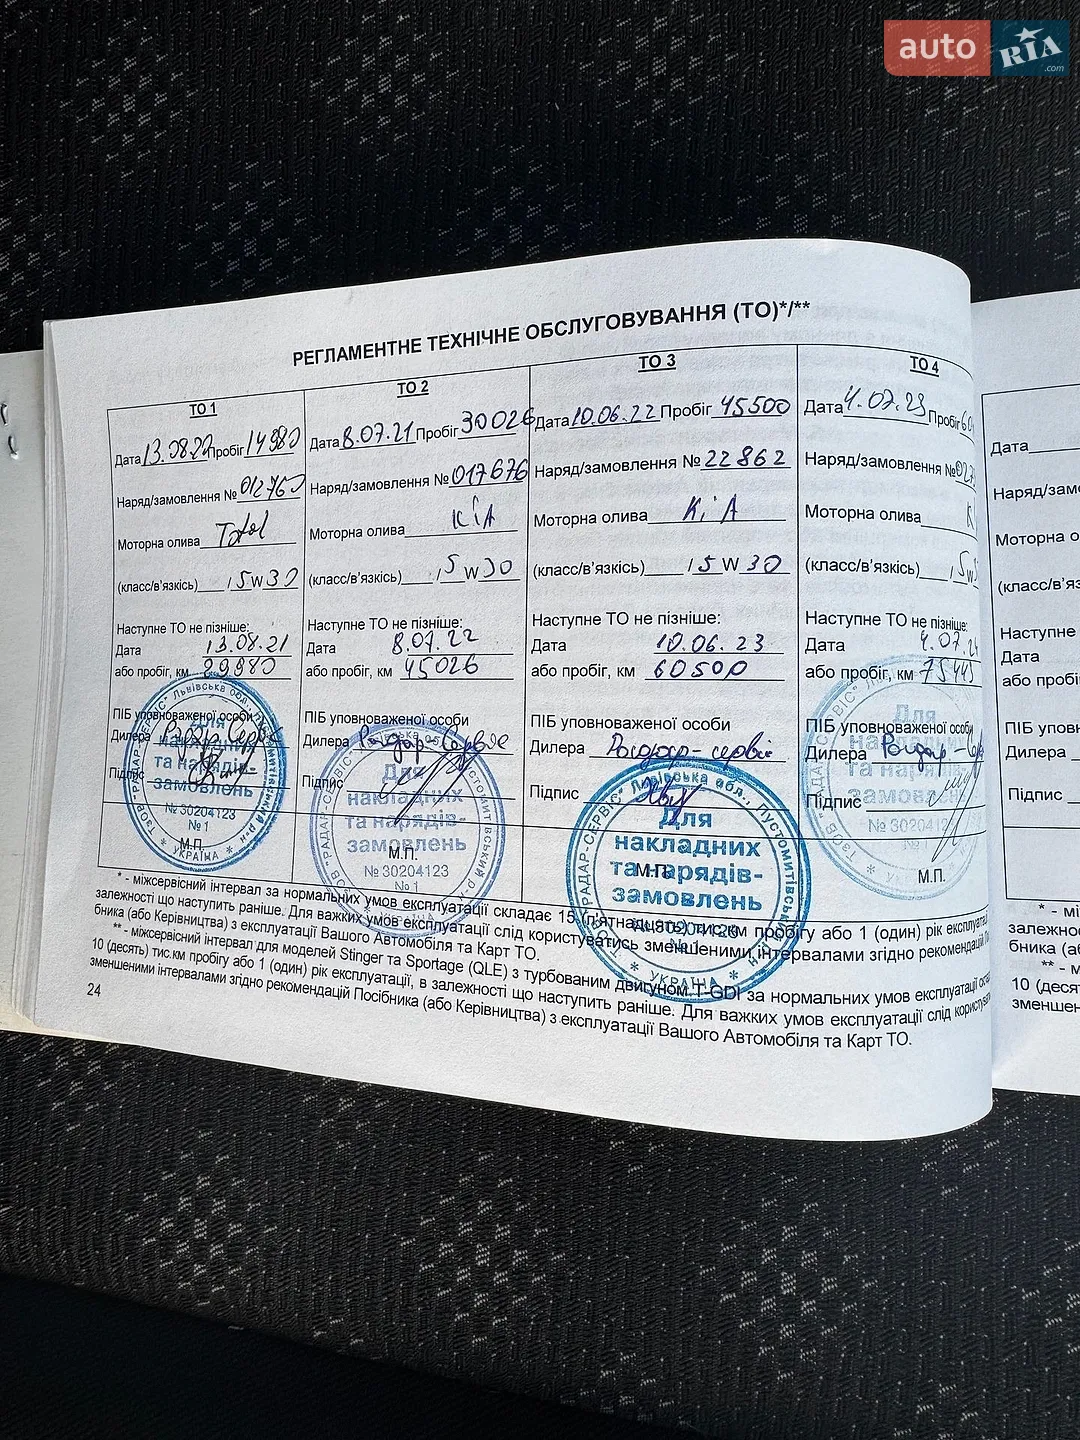 auto RIA.com
РЕГЛАМЕНТНЕ ТЕХНІЧНЕ ОБСЛУГОВУВАННЯ (ТО)*/**
ТО 1
Дата Пробіг 14980
Наряд/замовлення № 012760
Моторна олива Total
(класс/в'язкісь) / 5 W 30
Наступне ТО не пізніше:
Дата 13.08.21
або пробіг, км 29980
ПІБ уповноваженої особи
Дилера Радар Сервіс
Підпис
М.П.
ТО 2
Дата 8.07.21 Пробіг 30026
Наряд/замовлення № 017676
Моторна олива KIA
(класс/в'язкісь) / 5 W 30
Наступне ТО не пізніше:
Дата 8.07.22
або пробіг, км 45026
ПІБ уповноваженої особи
Дилера Радар-Сервіс
Підпис
М.П.
ТО 3
Дата 10.06.22 Пробіг 45500
Наряд/замовлення № 22862
Моторна олива KiA
(класс/в'язкісь) / 5 W 30
Наступне ТО не пізніше:
Дата 10.06.23
або пробіг, км 60500
ПІБ уповноваженої особи
Дилера Радар-сервіс
Підпис
М.П.
ТО 4
Дата 4.07.23 Пробіг
Наряд/замовлення №
Моторна олива
(класс/в'язкісь) / 5 W
Наступне ТО не пізніше:
Дата 4.07.2
або пробіг, км 75443
ПІБ уповноваженої особи
Дилера Радар-Се
Підпис
М.П.
ТзОВ "РАДАР-СЕРВІС" Львівська обл., Пустомитівський р-н
* УКРАЇНА *
Для
накладних
та нарядів-
замовлень
№ 30204123
№ 1
* - міжсервісний інтервал за нормальних умов експлуатації складає 15 (п'ятнадцять) тис.км пробігу або 1 (один) рік експлуатації
залежності що наступить раніше. Для важких умов експлуатації слід користуватись зменшеними інтервалами згідно рекомендацій
бника (або Керівництва) з експлуатації Вашого Автомобіля та Карт ТО.
** - міжсервісний інтервал для моделей Stinger та Sportage (QLE) з турбованим двигуном T-GDI за нормальних умов експлуатації
10 (десять) тис.км пробігу або 1 (один) рік експлуатації, в залежності що наступить раніше. Для важких умов експлуатації слід
зменшеними інтервалами згідно рекомендацій Посібника (або Керівництва) з експлуатації Вашого Автомобіля та Карт ТО.
24
Дата
Наряд/зам
Моторна о
(класс/в'яз
Наступне
Дата
або пробі
ПІБ упов
Дилера
Підпис
* - мі
залежно
бника (а
** - м
10 (десят
зменшен